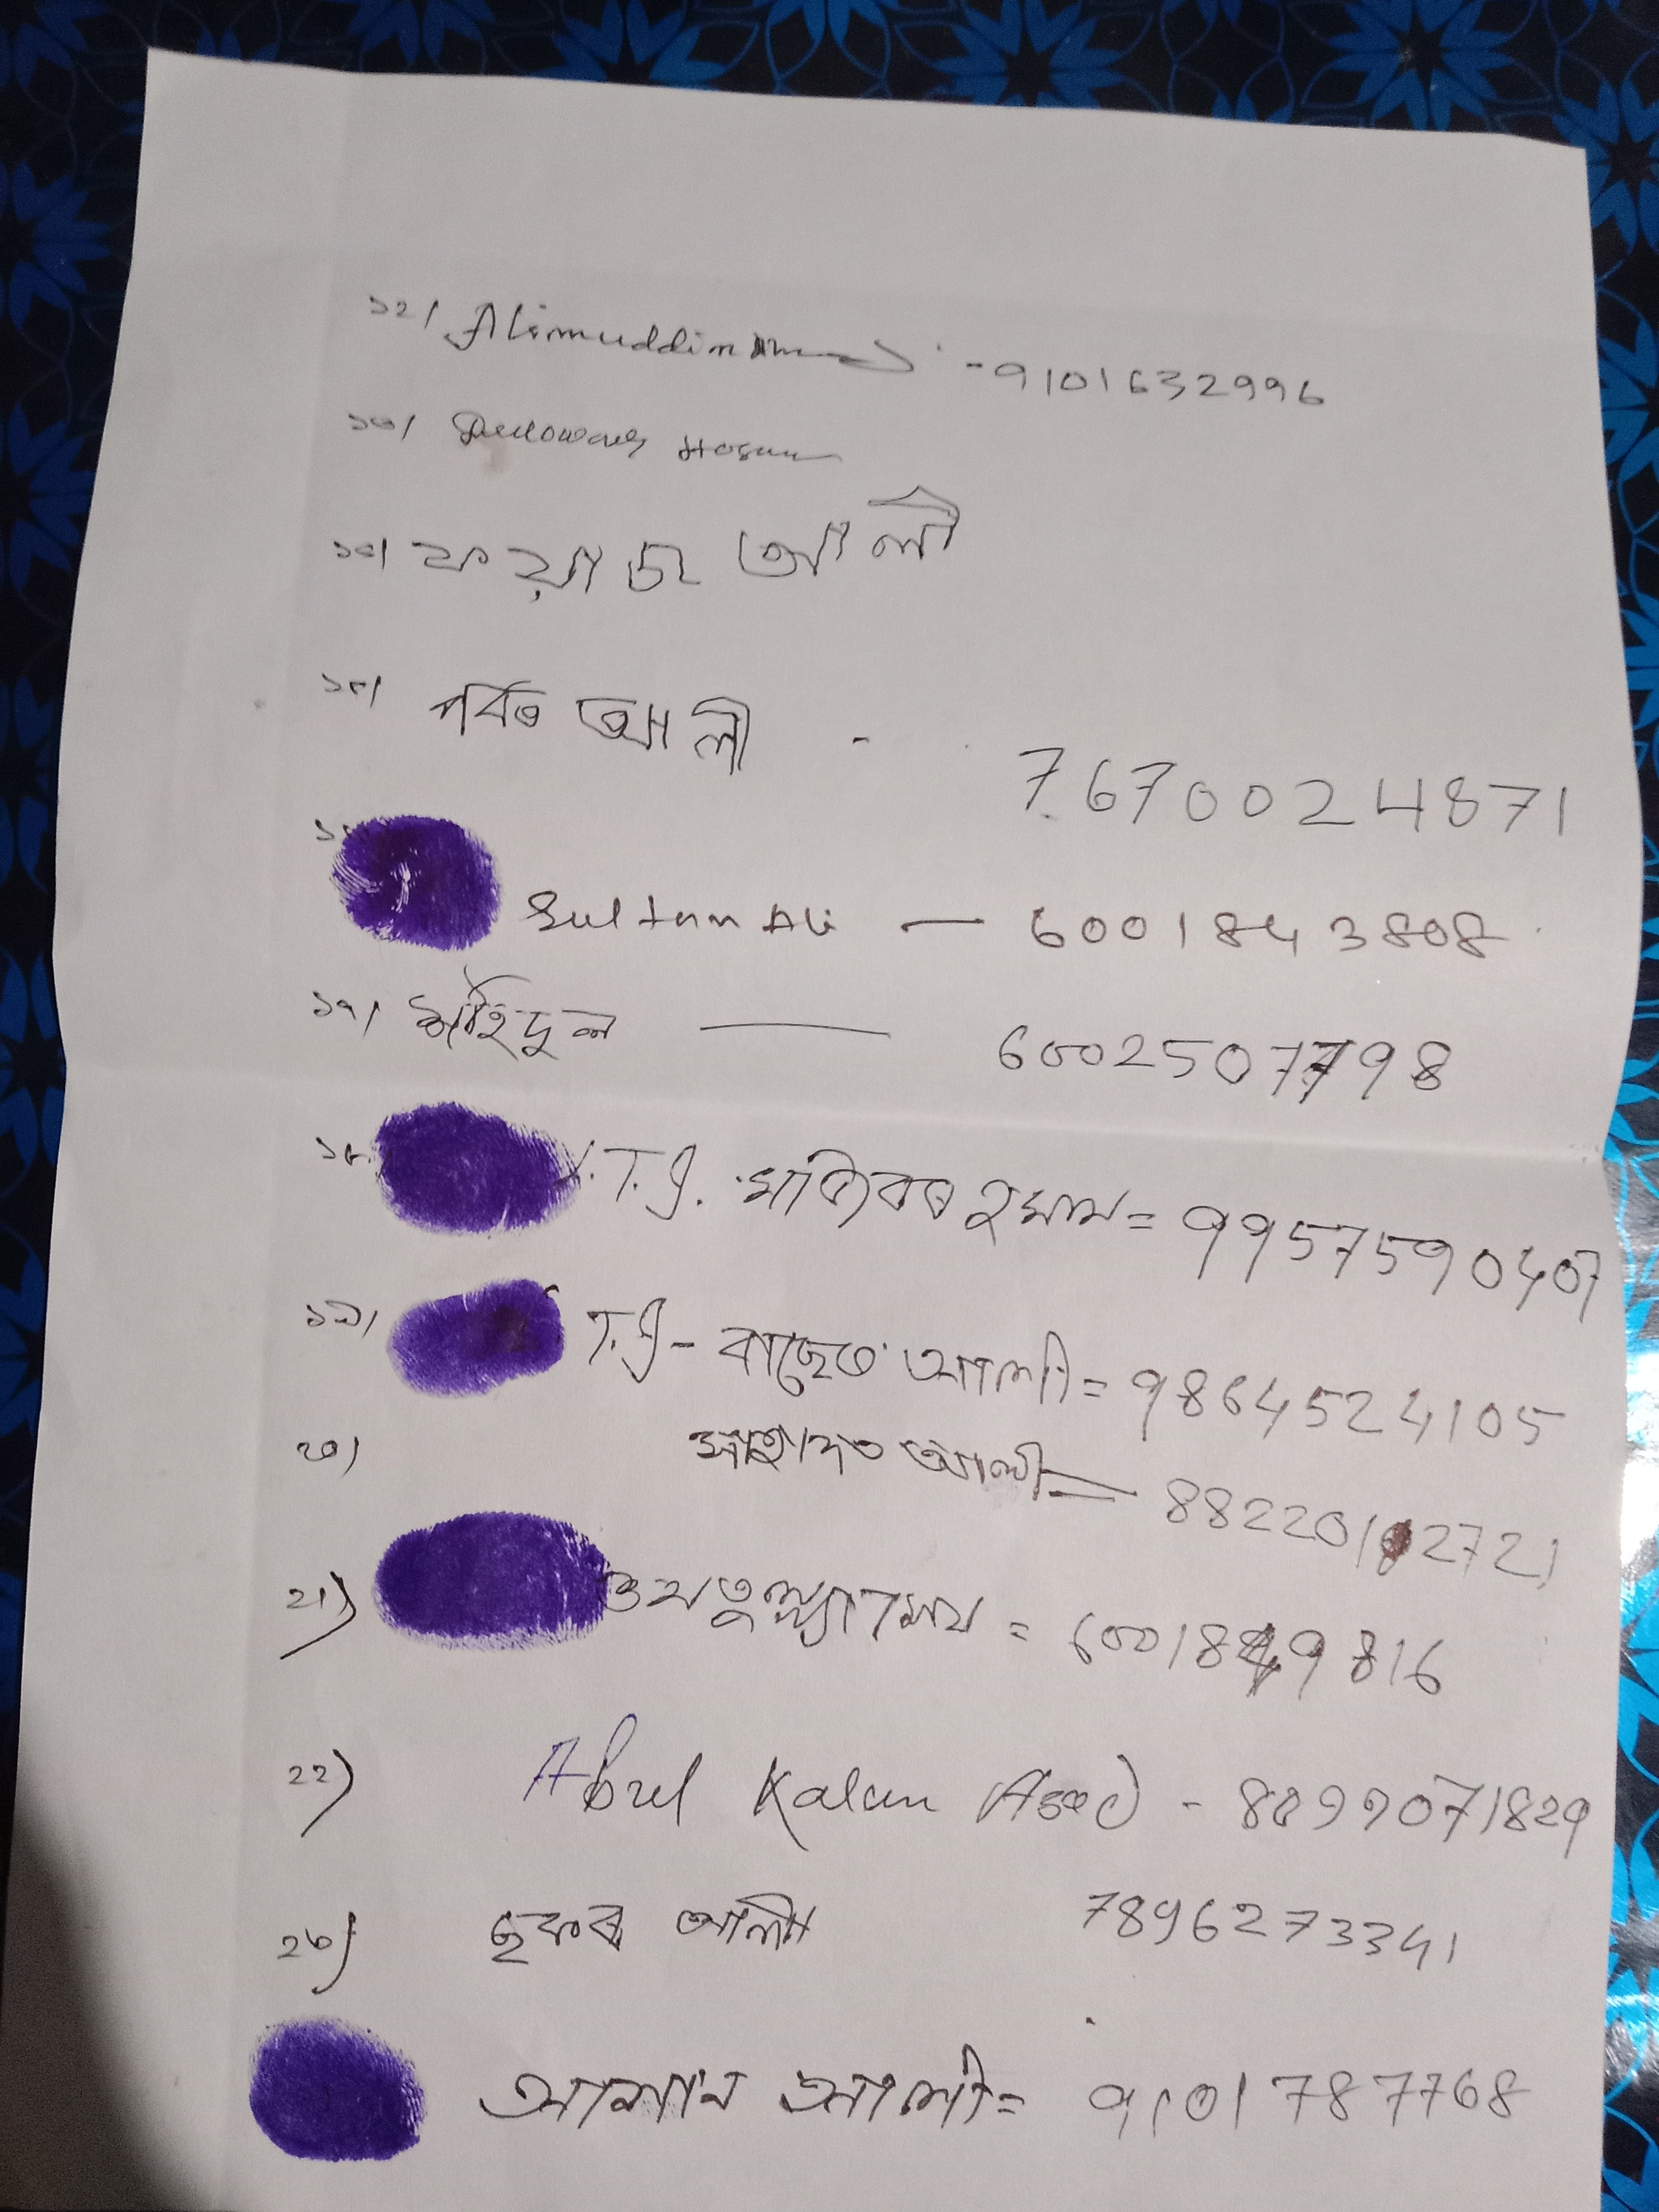 ১২। Alimuddin Ahmed - 9101632996
১৩। Delowar Hosen
১৪। ফয়াজ আলী
১৫। পৰ্বত আলী - 7670024871
Sultan Ali — 6001843808
১৭। শ্বহিদুল — 6002507798
১৮ T.I. মজিবৰ ৰহমান = 9957590407
১৯। T.I - বাছেত আলী = 9864524105
২০। আলী = 8822012721
২১) = 6001849816
২২) Abul Kalam Azad - 8099071829
২৩) ছকৰ আলী 7896273341
আমান আলী = 9101787768